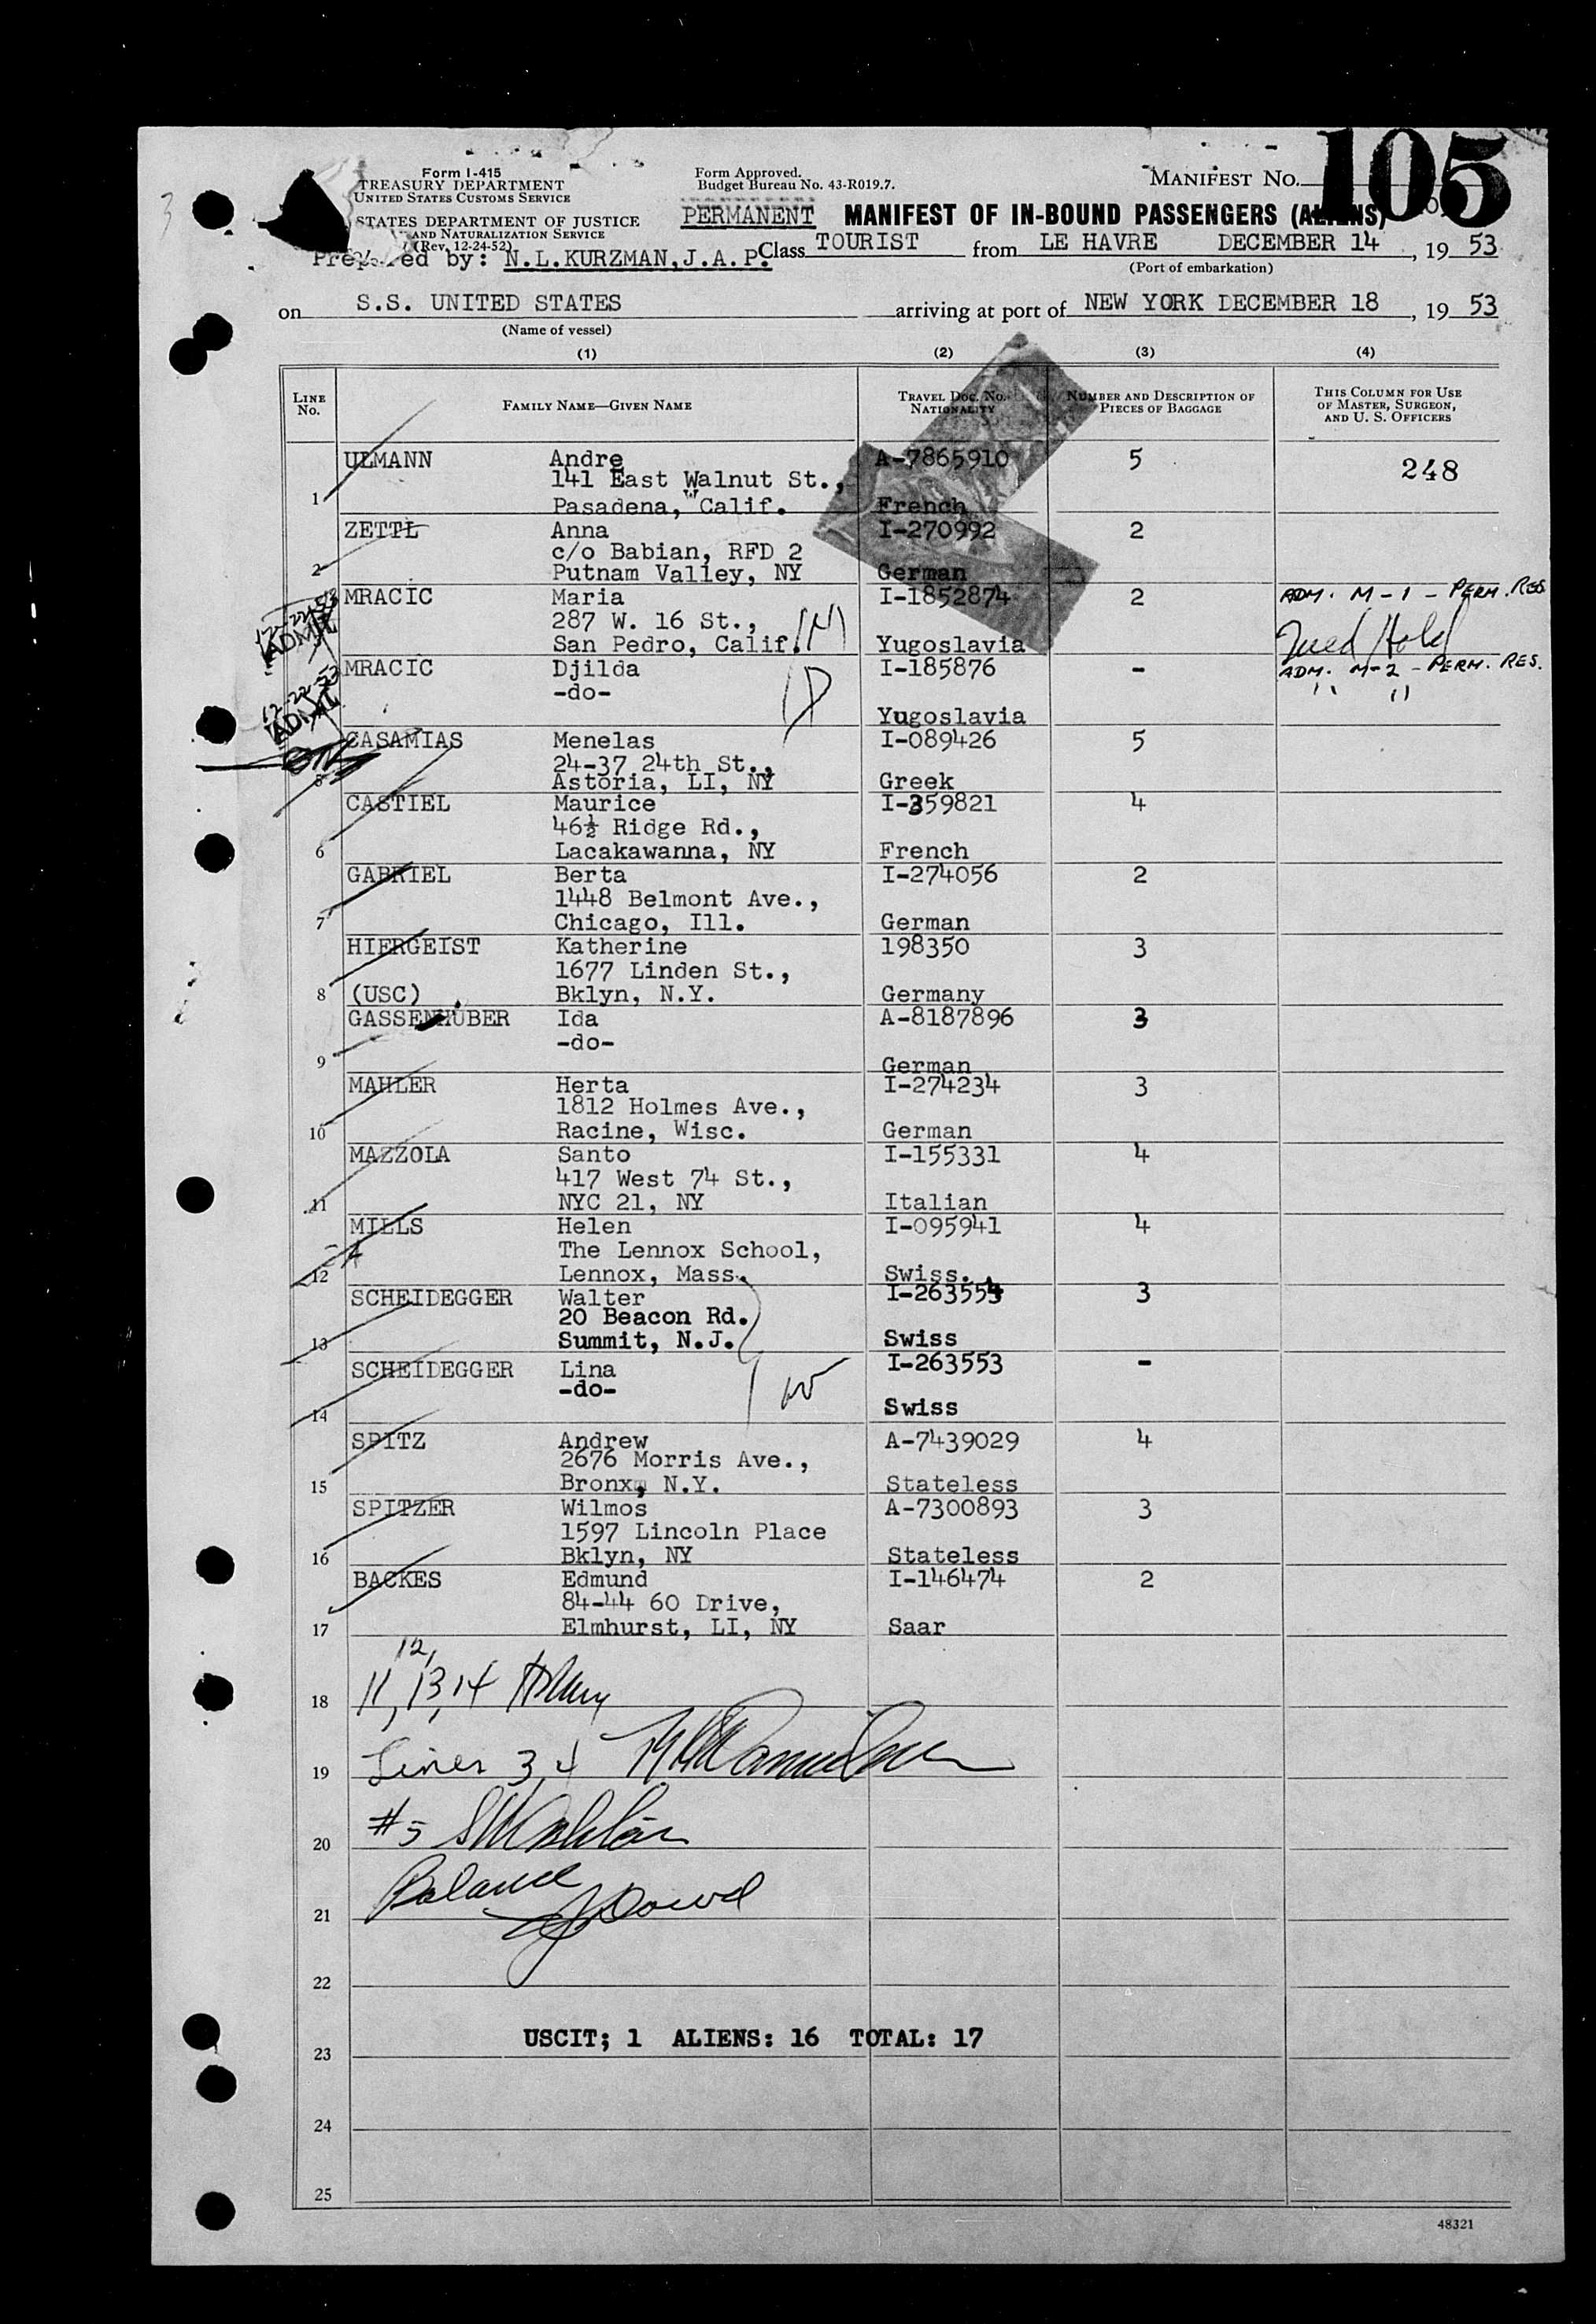 105
Form I-415
TREASURY DEPARTMENT
UNITED STATES CUSTOMS SERVICE
STATES DEPARTMENT OF JUSTICE
AND NATURALIZATION SERVICE
(Rev. 12-24-52)
Form Approved.
Budget Bureau No. 43-R019.7.
MANIFEST NO.
PERMANENT MANIFEST OF IN-BOUND PASSENGERS (ALIENS)
Prepared by: N.L.KURZMAN,J.A.P. Class TOURIST from LE HAVRE DECEMBER 14, 19 53
(Port of embarkation)
on S.S. UNITED STATES arriving at port of NEW YORK DECEMBER 18, 19 53
(Name of vessel)
(1) (2) (3) (4)
LINE NO. FAMILY NAME—GIVEN NAME TRAVEL DOC. NO. NATIONALITY NUMBER AND DESCRIPTION OF PIECES OF BAGGAGE THIS COLUMN FOR USE OF MASTER, SURGEON, AND U. S. OFFICERS
ULMANN Andre A-7865910 5 248
141 East Walnut St.,
1 Pasadena, Calif. French
ZETTL Anna I-270992 2
c/o Babian, RFD 2
2 Putnam Valley, NY German
MRACIC Maria I-1852874 2 ADM. M-1 - PERM. RES.
12-22-53 ADMIT. 287 W. 16 St.,
San Pedro, Calif. (M) Yugoslavia Med Hold
MRACIC Djilda I-185876 - ADM. M-2 - PERM. RES.
12-22-53 ADMIT. -do- " "
Yugoslavia
CASAMIAS Menelas I-089426 5
24-37 24th St.,
5 Astoria, LI, NY Greek
CASTIEL Maurice I-359821 4
46½ Ridge Rd.,
6 Lacakawanna, NY French
GABRIEL Berta I-274056 2
1448 Belmont Ave.,
7 Chicago, Ill. German
HIERGEIST Katherine 198350 3
1677 Linden St.,
8 (USC) Bklyn, N.Y. Germany
GASSENHUBER Ida A-8187896 3
-do-
9 German
MAHLER Herta I-274234 3
1812 Holmes Ave.,
10 Racine, Wisc. German
MAZZOLA Santo I-155331 4
417 West 74 St.,
11 NYC 21, NY Italian
MILLS Helen I-095941 4
The Lennox School,
12 Lennox, Mass. Swiss.
SCHEIDEGGER Walter I-263554 3
20 Beacon Rd.
13 Summit, N.J. Swiss
SCHEIDEGGER Lina I-263553 -
-do-
14 Swiss
SPITZ Andrew A-7439029 4
2676 Morris Ave.,
15 Bronx, N.Y. Stateless
SPITZER Wilmos A-7300893 3
1597 Lincoln Place
16 Bklyn, NY Stateless
BACKES Edmund I-146474 2
84-44 60 Drive,
17 Elmhurst, LI, NY Saar
12,
18 11, 13, 14
19 Lines 3, 4
20 #5
21 Balance Dowd
22
USCIT; 1 ALIENS: 16 TOTAL: 17
23
24
25
48321